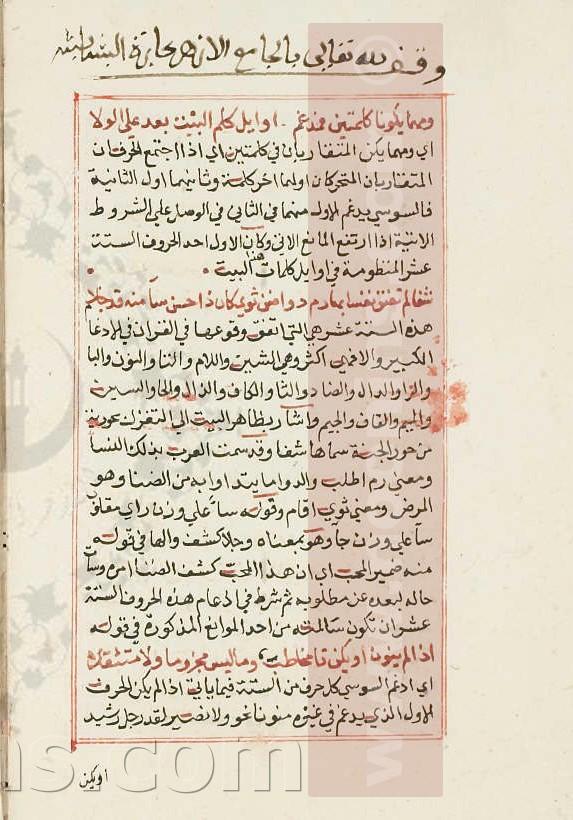 وقف لله تعالى بالجامع الازهر بحارة البشابشه
ومهما يكونا كلمتين فمدغم .. اوايل كلم البيت بعد علي الولا
اي ومهما يكن المتقاربان في كلمتين اي اذا اجتمع الحرفان
المتقاربان المتحركان اولهما اخر كلمة وثانيهما اول الثانية
فالسوسي يدغم الاول منهما في الثاني في الوصل على الشروط
الاتية اذا ارتفع المانع الاتي وكان الاول احد الحروف الستة
عشر المنظومة في اوايل كلمات هذا البيت
شفا لم تضق نفسا بها رم دوا ضن ثوي كان ذا حسن سأ منه قد جلا
هذه الستة عشر هي التي اتفق وقوعها في القران في الادغام
الكبير والا فهي اكثر وهي الشين واللام والتا والنون والبا
والرا والدال والضاد والثا والكاف والذال والحا والسين
والميم والقاف والجيم واشار بظاهر البيت الي التغزل بحورية
من حور الجنة سماها شفا وقد سمت العرب بذلك النسا
ومعني رم اطلب والدوا ما يتداوا به من الضنا وهو
المرض ومعني ثوي اقام وقوله سأ علي وزن راي مقلوب
سا علي وزن جا وهو بمعناه وجلا كشف والها في قوله
منه ضمير المحب اي ان هذا المحب كشف الضنا امره وسأ
حاله لبعده عن مطلوبه ثم شرط في ادغام هذه الحروف الستة
عشر ان تكون سالمة من احد الموانع المذكورة في قوله
اذا لم ينون او يكن تا مخاطب .. وما ليس مجزوما ولا متثقلا
اي ادغم السوسي كل حرف من الستة فيما ياتي اذا لم يكن الحرف
الاول الذي يدغم في غيره منونا نحو ولا نصير لقد رجل رشيد
او يكن